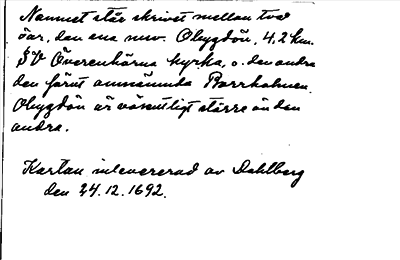 Namnet står skrivet mellan två
öar, den ena nuv. Obygdön, 4,2 km.
SV Överenhörna kyrka, o. den andra
den förut omnämnda Borrholmen.
Obygdön är väsentligt större än den
andra.
Kartan inlevererad av Dahlberg
den 24.12.1692.